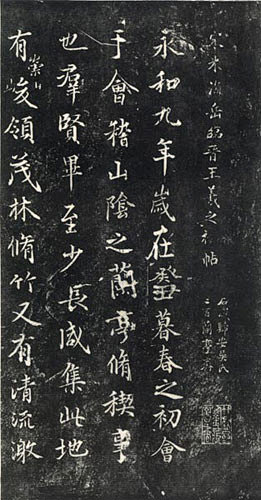 宋米海岳臨晋王羲之禊帖
石 歸安吳氏
二百蘭亭
永和九年歲在癸丑暮春之初會
于會稽山陰之蘭亭脩稧事
也羣賢畢至少長咸集此地
有崇山峻領茂林脩竹又有清流激